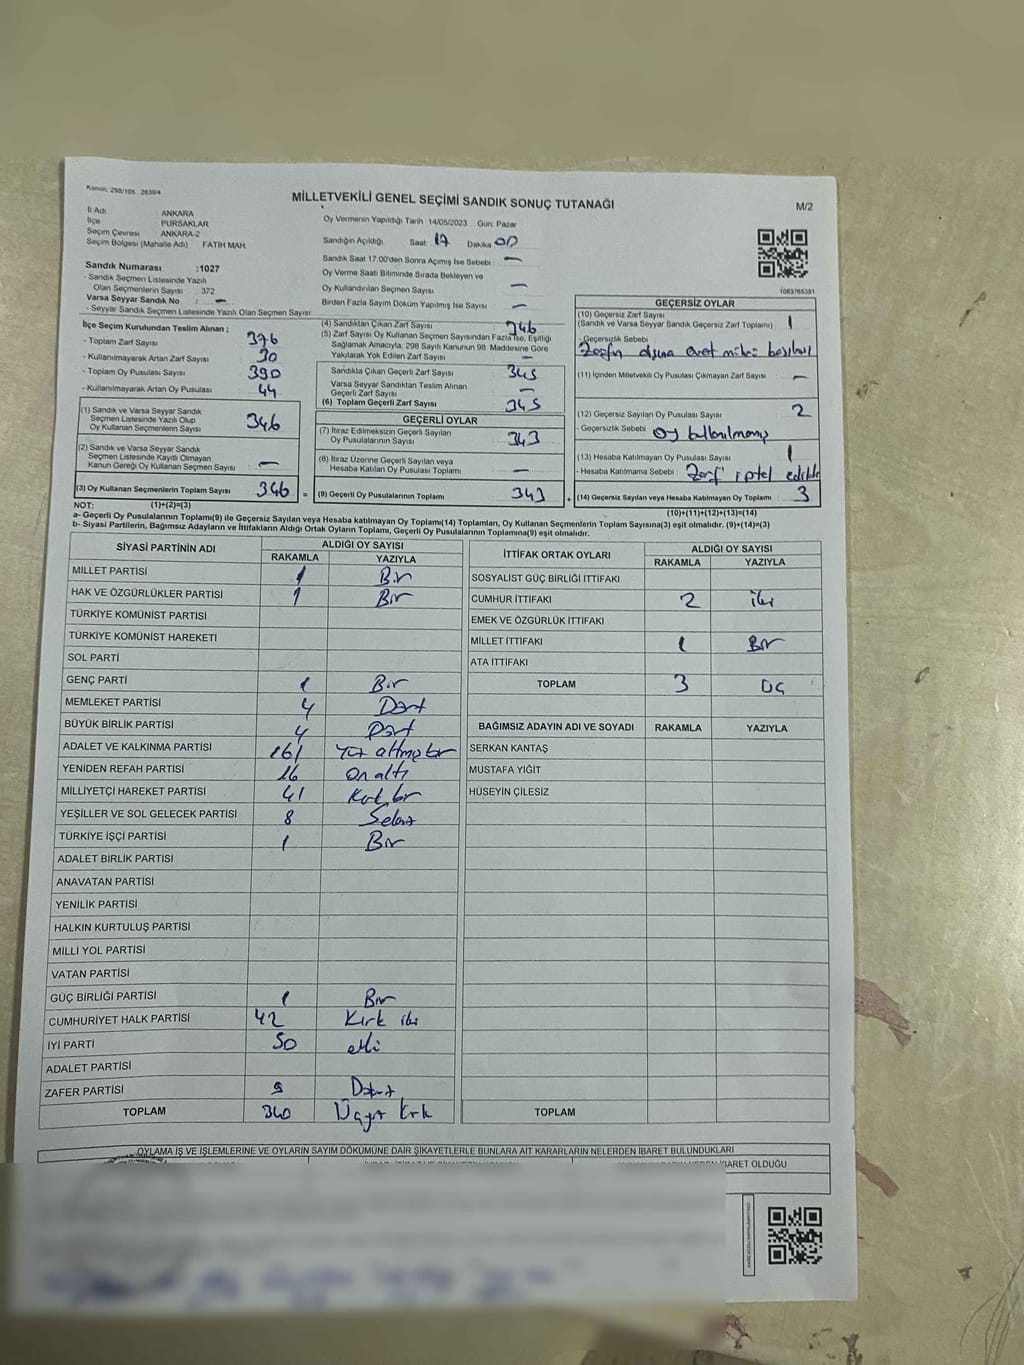 Kanun: 298/105 , 2839/4
MİLLETVEKİLİ GENEL SEÇİMİ SANDIK SONUÇ TUTANAĞI
M/2
İl Adı ANKARA
İlçe PURSAKLAR
Seçim Çevresi ANKARA-2
Seçim Bölgesi (Mahalle Adı) FATİH MAH.
Oy Vermenin Yapıldığı Tarih 14/05/2023 Gün: Pazar
Sandığın Açıldığı Saat: 17 Dakika 00
Sandık Saat 17:00'den Sonra Açımış İse Sebebi : —
Oy Verme Saati Bitiminde Sırada Bekleyen ve
Oy Kullandırılan Seçmen Sayısı —
Birden Fazla Sayım Döküm Yapılmış İse Sayısı —
Sandık Numarası :1027
- Sandık Seçmen Listesinde Yazılı
Olan Seçmenlerin Sayısı : 372
Varsa Seyyar Sandık No : —
- Seyyar Sandık Seçmen Listesinde Yazılı Olan Seçmen Sayısı
İlçe Seçim Kurulundan Teslim Alınan ;
- Toplam Zarf Sayısı 376
- Kullanılmayarak Artan Zarf Sayısı 30
- Toplam Oy Pusulası Sayısı 390
- Kullanılmayarak Artan Oy Pusulası 44
(1) Sandık ve Varsa Seyyar Sandık
Seçmen Listesinde Yazılı Olup
Oy Kullanan Seçmenlerin Sayısı 346
(2) Sandık ve Varsa Seyyar Sandık
Seçmen Listesinde Kayıtlı Olmayan
Kanun Gereği Oy Kullanan Seçmen Sayısı —
(3) Oy Kullanan Seçmenlerin Toplam Sayısı 346 =
(4) Sandıktan Çıkan Zarf Sayısı 346
(5) Zarf Sayısı Oy Kullanan Seçmen Sayısından Fazla İse, Eşitliği
Sağlamak Amacıyla; 298 Sayılı Kanunun 98. Maddesine Göre
Yakılarak Yok Edilen Zarf Sayısı —
Sandıkta Çıkan Geçerli Zarf Sayısı 345
Varsa Seyyar Sandıktan Teslim Alınan
Geçerli Zarf Sayısı —
(6) Toplam Geçerli Zarf Sayısı 345
GEÇERLİ OYLAR
(7) İtiraz Edilmeksizin Geçerli Sayılan
Oy Pusulalarının Sayısı 343
(8) İtiraz Üzerine Geçerli Sayılan veya
Hesaba Katılan Oy Pusulası Toplamı —
(9) Geçerli Oy Pusulalarının Toplamı 343 +
GEÇERSİZ OYLAR
(10) Geçersiz Zarf Sayısı
(Sandık ve Varsa Seyyar Sandık Geçersiz Zarf Toplamı) 1
- Geçersizlik Sebebi :
Zarfın dışına evet mührü basılması
(11) İçinden Milletvekili Oy Pusulası Çıkmayan Zarf Sayısı —
(12) Geçersiz Sayılan Oy Pusulası Sayısı 2
- Geçersizlik Sebebi Oy kullanılmamış
(13) Hesaba Katılmayan Oy Pusulası Sayısı 1
- Hesaba Katılmama Sebebi : Zarf iptal edildi
(14) Geçersiz Sayılan veya Hesaba Katılmayan Oy Toplamı 3
NOT: (1)+(2)=(3) (10)+(11)+(12)+(13)=(14)
a- Geçerli Oy Pusulalarının Toplamı(9) ile Geçersiz Sayılan veya Hesaba katılmayan Oy Toplamı(14) Toplamları, Oy Kullanan Seçmenlerin Toplam Sayısına(3) eşit olmalıdır. (9)+(14)=(3)
b- Siyasi Partilerin, Bağımsız Adayların ve İttifakların Aldığı Ortak Oyların Toplamı, Geçerli Oy Pusulalarının Toplamına(9) eşit olmalıdır.
SİYASİ PARTİNİN ADI ALDIĞI OY SAYISI
RAKAMLA YAZIYLA
MİLLET PARTİSİ 1 Bir
HAK VE ÖZGÜRLÜKLER PARTİSİ 1 Bir
TÜRKİYE KOMÜNİST PARTİSİ
TÜRKİYE KOMÜNİST HAREKETİ
SOL PARTİ
GENÇ PARTİ 1 Bir
MEMLEKET PARTİSİ 4 Dört
BÜYÜK BİRLİK PARTİSİ 4 Dört
ADALET VE KALKINMA PARTİSİ 161 Yüz altmışbir
YENİDEN REFAH PARTİSİ 16 On altı
MİLLİYETÇİ HAREKET PARTİSİ 41 Kırk bir
YEŞİLLER VE SOL GELECEK PARTİSİ 8 Sekiz
TÜRKİYE İŞÇİ PARTİSİ 1 Bir
ADALET BİRLİK PARTİSİ
ANAVATAN PARTİSİ
YENİLİK PARTİSİ
HALKIN KURTULUŞ PARTİSİ
MİLLİ YOL PARTİSİ
VATAN PARTİSİ
GÜÇ BİRLİĞİ PARTİSİ 1 Bir
CUMHURİYET HALK PARTİSİ 42 Kırk iki
İYİ PARTİ 50 elli
ADALET PARTİSİ
ZAFER PARTİSİ 9 Dokuz
TOPLAM 340 Üçyüz Kırk
İTTİFAK ORTAK OYLARI ALDIĞI OY SAYISI
RAKAMLA YAZIYLA
SOSYALİST GÜÇ BİRLİĞİ İTTİFAKI
CUMHUR İTTİFAKI 2 iki
EMEK VE ÖZGÜRLÜK İTTİFAKI
MİLLET İTTİFAKI 1 Bir
ATA İTTİFAKI
TOPLAM 3 ÜÇ
BAĞIMSIZ ADAYIN ADI VE SOYADI RAKAMLA YAZIYLA
SERKAN KANTAŞ
MUSTAFA YİĞİT
HÜSEYİN ÇİLESİZ
TOPLAM
OYLAMA İŞ VE İŞLEMLERİNE VE OYLARIN SAYIM DÖKÜMÜNE DAİR ŞİKAYETLERLE BUNLARA AİT KARARLARIN NELERDEN İBARET BULUNDUKLARI
İBARET OLDUĞU